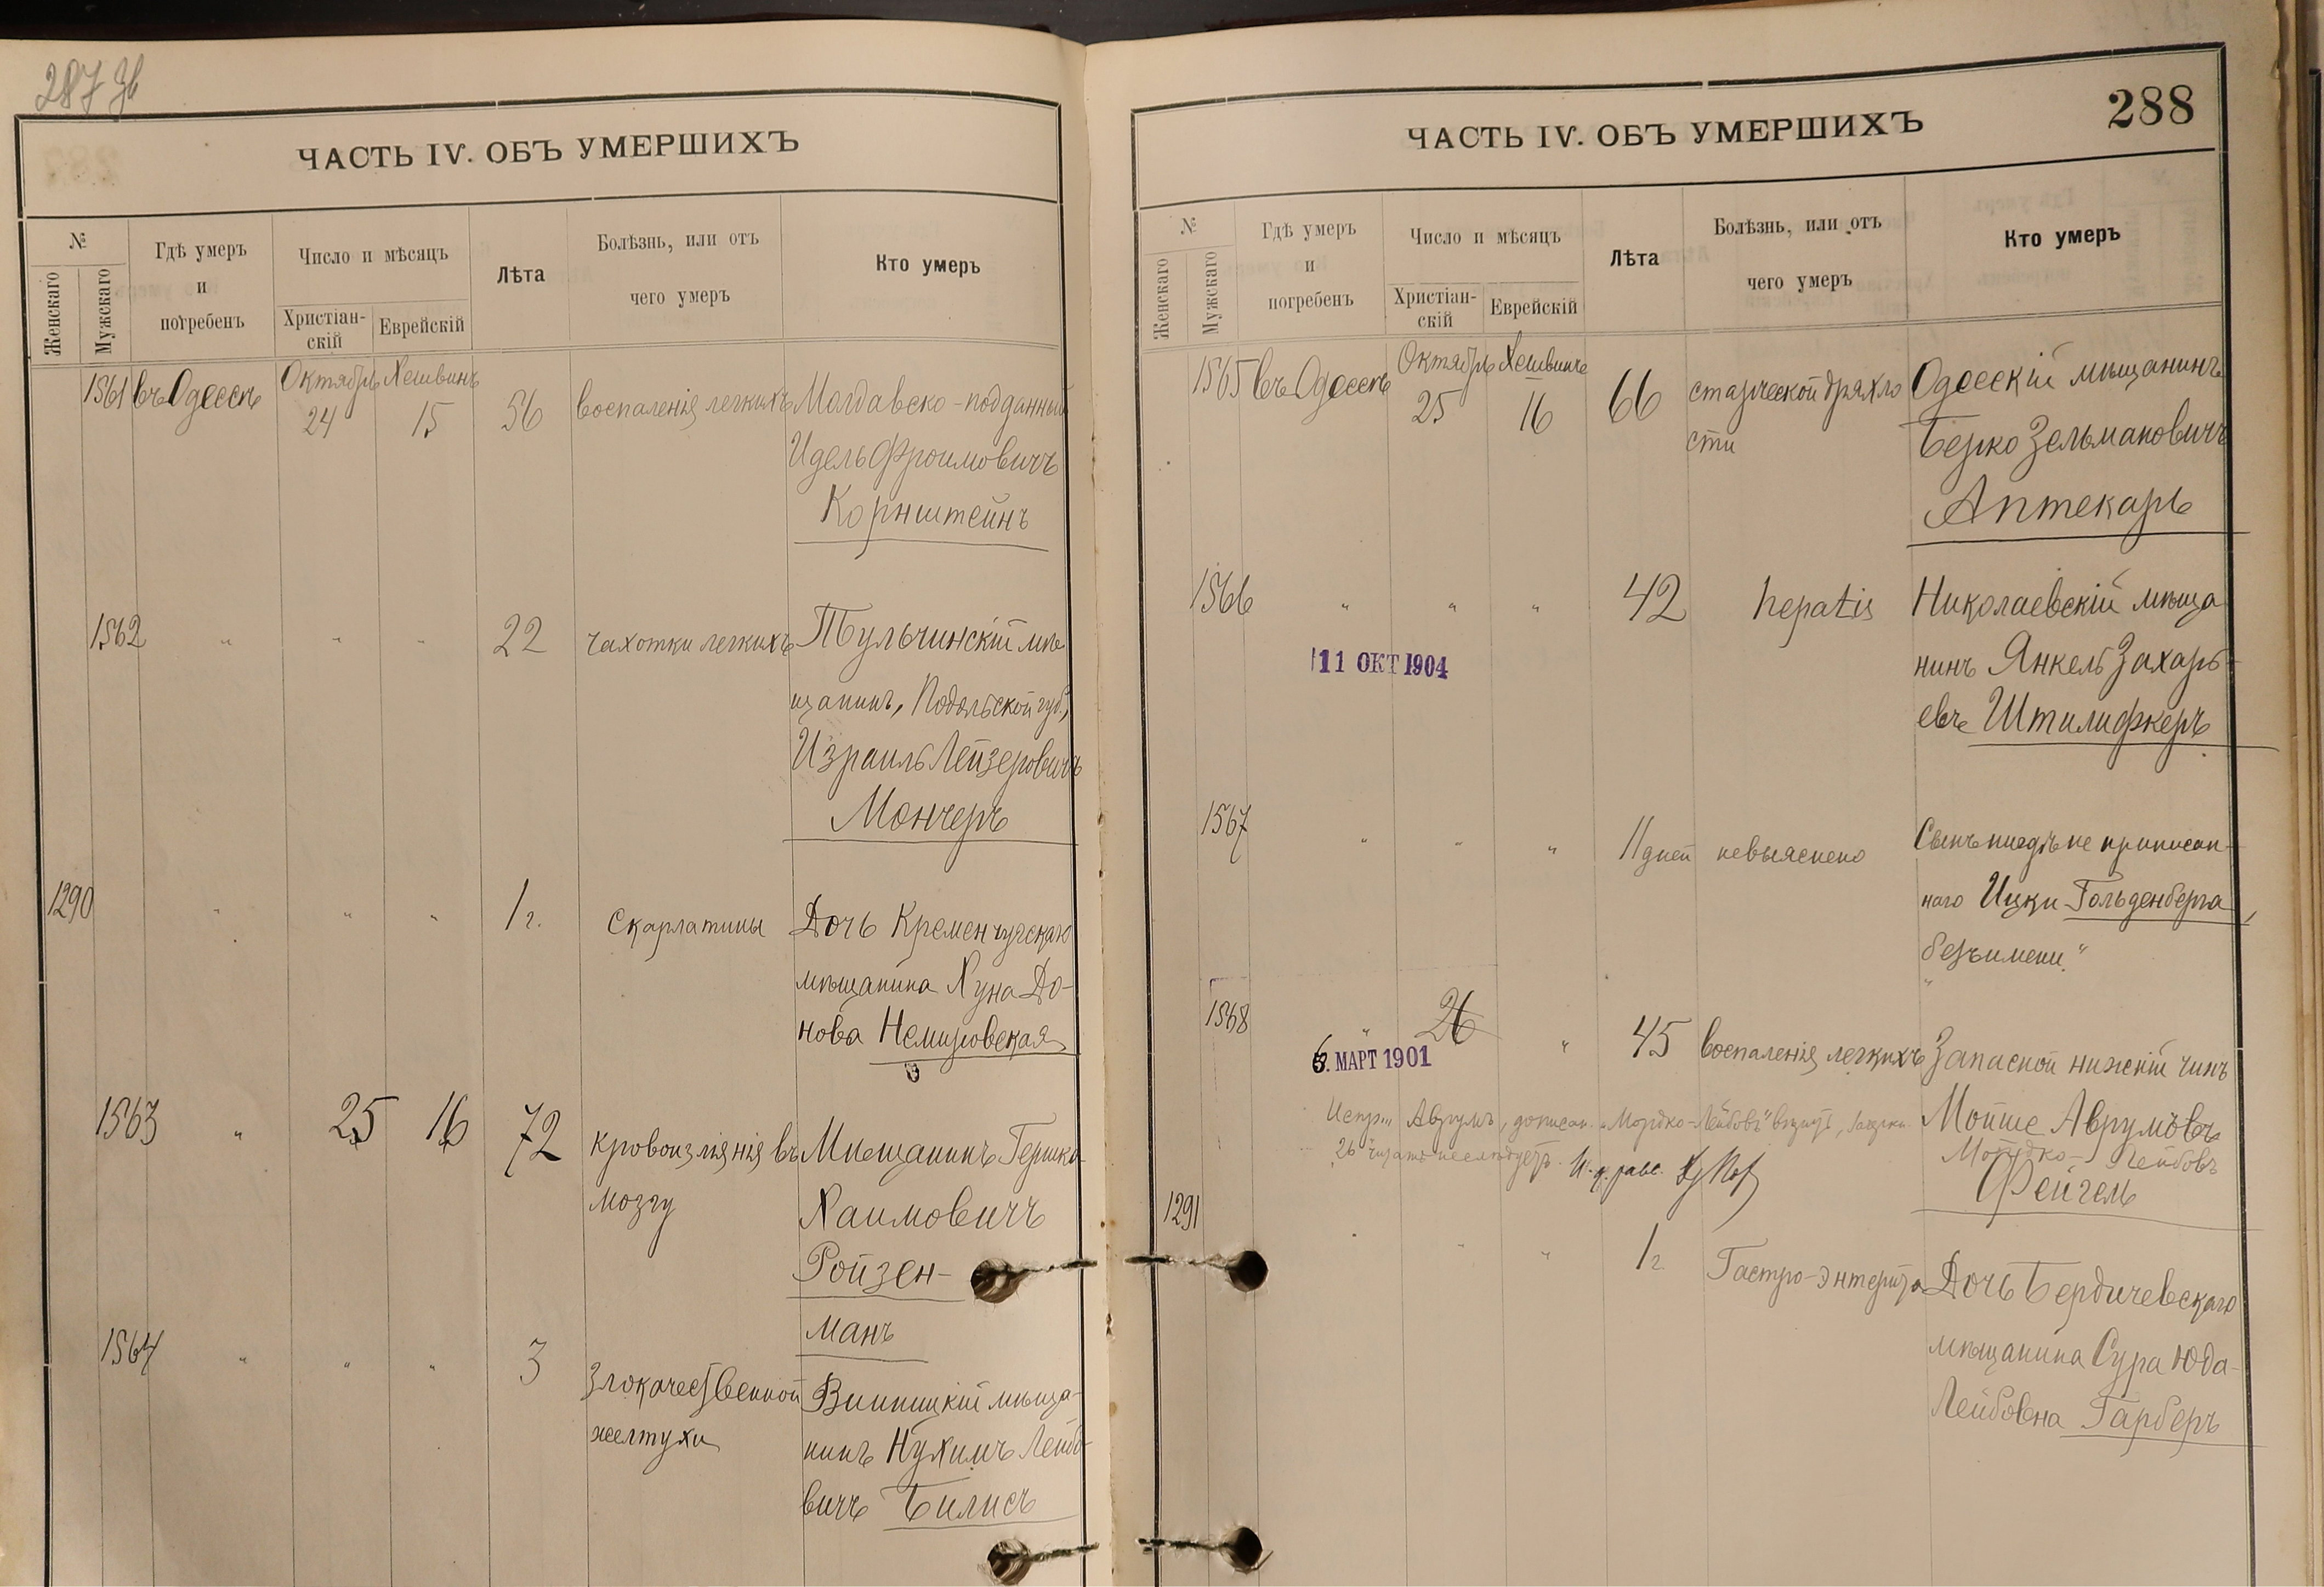 287
ЧАСТЬ IV. ОБЪ УМЕРШИХЪ
№
Женскаго
Мужскаго
Гдѣ умеръ
и
погребенъ
Число и мѣсяцъ
Христіан-
скій
Еврейскій
Лѣта
Болѣзнь, или отъ
чего умеръ
Кто умеръ
1561 въ Одессѣ Октябрь 24 Хешвинъ 15 56 воспаленія легкихъ Молдавско-подданный
Идель Фроимовичъ
Корнштейнъ
1562 " " " 22 чахотки легкихъ Тульчинскій мѣ
щанинъ, Подольской губ.,
Израиль Лейзеровичъ
Мончеръ
1290 " " " 1 г. Скарлатины Дочь Кременчугскаго
мѣщанина Хуна До-
нова Немировская
1563 " 25 16 72 кровоизліянія въ Мѣщанинъ Гершко
мозгу Хаимовичъ
Ройзен-
манъ
1564 " " " 3 злокачественной Винницкій мѣща-
желтухи нинъ Нухимъ Лейбо-
вичъ Билисъ
288
ЧАСТЬ IV. ОБЪ УМЕРШИХЪ
№
Женскаго
Мужскаго
Гдѣ умеръ
и
погребенъ
Число и мѣсяцъ
Христіан-
скій
Еврейскій
Лѣта
Болѣзнь, или отъ
чего умеръ
Кто умеръ
1565 въ Одессѣ Октябрь 25 Хешвинъ 16 66 старческой дряхло Одесскій мѣщанинъ
сти Берко Зельмановичъ
Аптекарь
1566 " " " 42 hepatis Николаевскій мѣща
11 ОКТ 1904 нинъ Янкель Захарь-
евъ Штилифкеръ
1567 " " " 11 дней невыяснено Сынъ нигдѣ не приписан-
наго Ицки Гольденберга,
"безъимени"
1568 " 26 " 45 воспаленія легкихъ Запасной нижній чинъ
6. МАРТ 1901
Испр... Аврумъ, дописан. "Мордко-Лейбовъ" Мойше Аврумовъ
26 читать не слѣдуетъ. Мордко-Лейбовъ
Фейгель
1291 " " " 1 г. Гастро-энтерита Дочь Бердичевскаго
мѣщанина Сура Юда-
Лейбовна Гарберъ